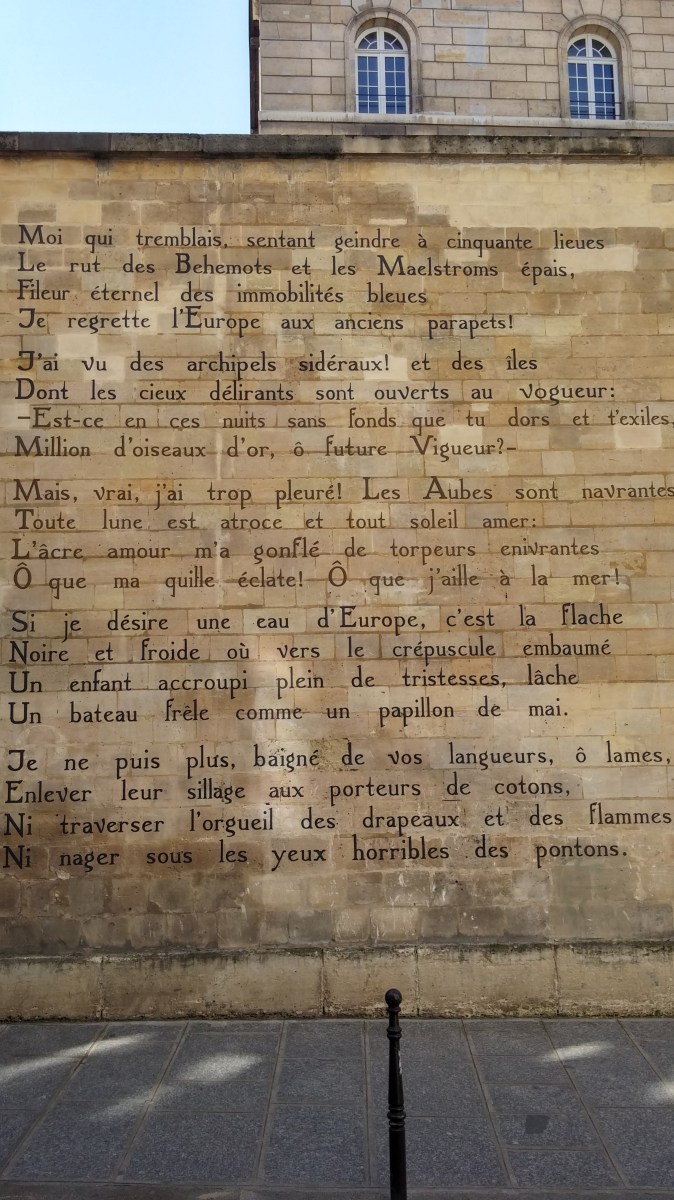 Moi qui tremblais, sentant geindre à cinquante lieues
Le rut des Behemots et les Maelstroms épais,
Fileur éternel des immobilités bleues
Je regrette l'Europe aux anciens parapets!
J'ai vu des archipels sidéraux! et des îles
Dont les cieux délirants sont ouverts au vogueur:
-Est-ce en ces nuits sans fonds que tu dors et t'exiles,
Million d'oiseaux d'or, ô future Vigueur?-
Mais, vrai, j'ai trop pleuré! Les Aubes sont navrantes
Toute lune est atroce et tout soleil amer:
L'âcre amour m'a gonflé de torpeurs enivrantes
Ô que ma quille éclate! Ô que j'aille à la mer!
Si je désire une eau d'Europe, c'est la flache
Noire et froide où vers le crépuscule embaumé
Un enfant accroupi plein de tristesses, lâche
Un bateau frêle comme un papillon de mai.
Je ne puis plus, baigné de vos langueurs, ô lames,
Enlever leur sillage aux porteurs de cotons,
Ni traverser l'orgueil des drapeaux et des flammes
Ni nager sous les yeux horribles des pontons.